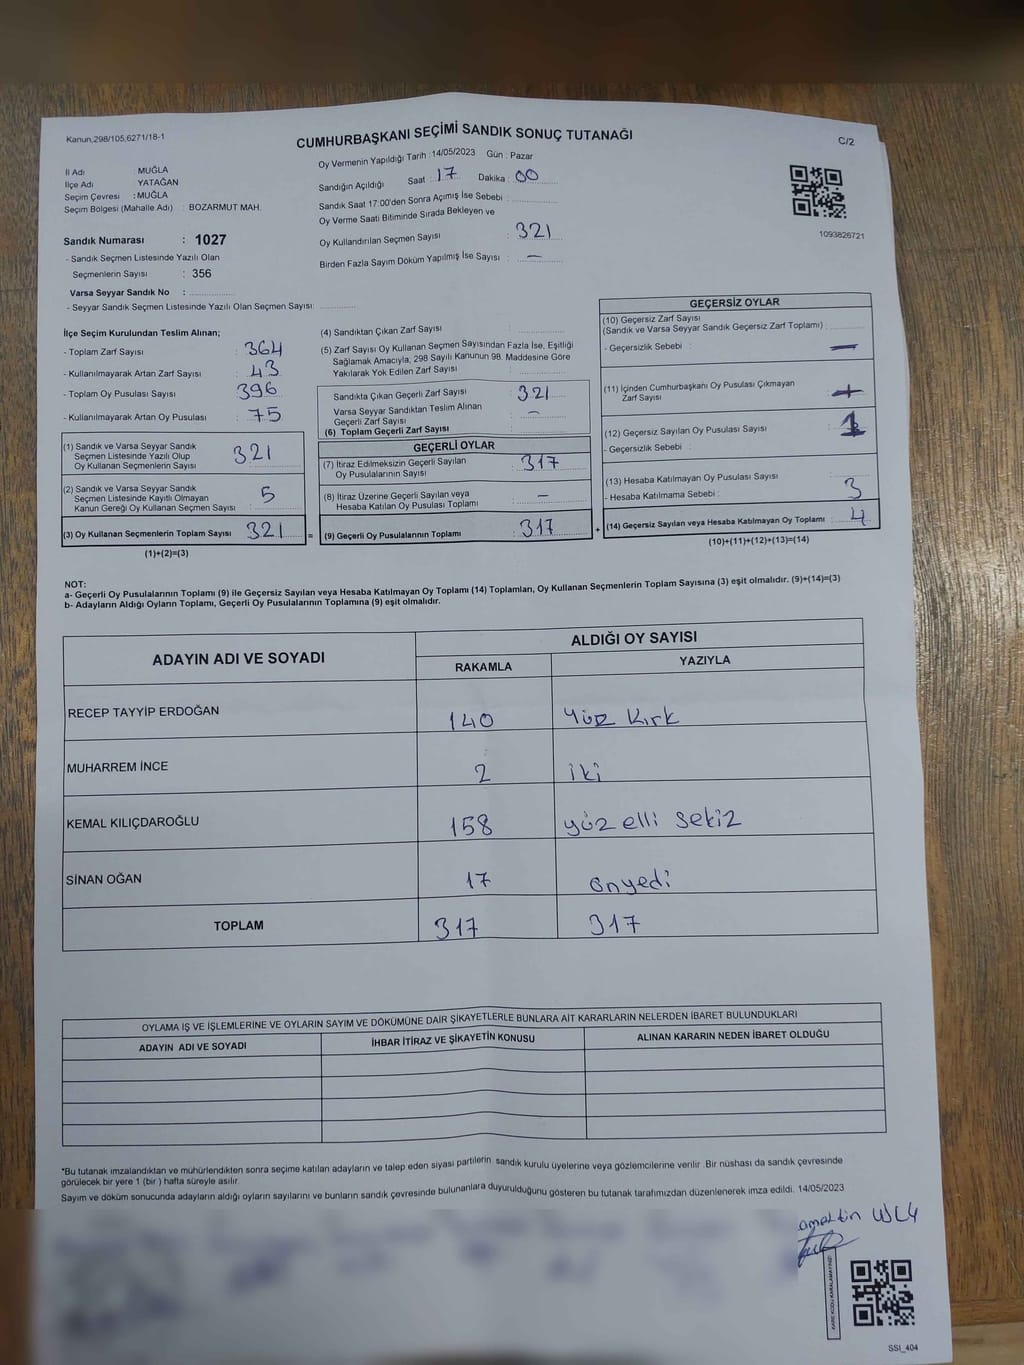 Kanun,298/105,6271/18-1
CUMHURBAŞKANI SEÇİMİ SANDIK SONUÇ TUTANAĞI
C/2
İl Adı : MUĞLA
İlçe Adı : YATAĞAN
Seçim Çevresi : MUĞLA
Seçim Bölgesi (Mahalle Adı) : BOZARMUT MAH.
Sandık Numarası : 1027
- Sandık Seçmen Listesinde Yazılı Olan
Seçmenlerin Sayısı : 356
Varsa Seyyar Sandık No :
- Seyyar Sandık Seçmen Listesinde Yazılı Olan Seçmen Sayısı:
Oy Vermenin Yapıldığı Tarih :14/05/2023 Gün : Pazar
Sandığın Açıldığı Saat : 17 Dakika : 00
Sandık Saat 17:00'den Sonra Açımış İse Sebebi :
Oy Verme Saati Bitiminde Sırada Bekleyen ve
Oy Kullandırılan Seçmen Sayısı : 321
Birden Fazla Sayım Döküm Yapılmış İse Sayısı : —
1093826721
İlçe Seçim Kurulundan Teslim Alınan;
- Toplam Zarf Sayısı : 364
- Kullanılmayarak Artan Zarf Sayısı : 43
- Toplam Oy Pusulası Sayısı : 396
- Kullanılmayarak Artan Oy Pusulası : 75
(1) Sandık ve Varsa Seyyar Sandık
Seçmen Listesinde Yazılı Olup
Oy Kullanan Seçmenlerin Sayısı : 321
(2) Sandık ve Varsa Seyyar Sandık
Seçmen Listesinde Kayıtlı Olmayan
Kanun Gereği Oy Kullanan Seçmen Sayısı : 5
(3) Oy Kullanan Seçmenlerin Toplam Sayısı : 321
(1)+(2)=(3)
(4) Sandıktan Çıkan Zarf Sayısı :
(5) Zarf Sayısı Oy Kullanan Seçmen Sayısından Fazla İse, Eşitliği
Sağlamak Amacıyla, 298 Sayılı Kanunun 98. Maddesine Göre
Yakılarak Yok Edilen Zarf Sayısı :
Sandıkta Çıkan Geçerli Zarf Sayısı : 321
Varsa Seyyar Sandıktan Teslim Alınan
Geçerli Zarf Sayısı : —
(6) Toplam Geçerli Zarf Sayısı :
GEÇERLİ OYLAR
(7) İtiraz Edilmeksizin Geçerli Sayılan
Oy Pusulalarının Sayısı : 317
(8) İtiraz Üzerine Geçerli Sayılan veya
Hesaba Katılan Oy Pusulası Toplamı : —
= (9) Geçerli Oy Pusulalarının Toplamı : 317
GEÇERSİZ OYLAR
(10) Geçersiz Zarf Sayısı
(Sandık ve Varsa Seyyar Sandık Geçersiz Zarf Toplamı) :
- Geçersizlik Sebebi : —
(11) İçinden Cumhurbaşkanı Oy Pusulası Çıkmayan
Zarf Sayısı :
(12) Geçersiz Sayılan Oy Pusulası Sayısı : 1
- Geçersizlik Sebebi :
(13) Hesaba Katılmayan Oy Pusulası Sayısı
- Hesaba Katılmama Sebebi : 3
+ (14) Geçersiz Sayılan veya Hesaba Katılmayan Oy Toplamı : 4
(10)+(11)+(12)+(13)=(14)
NOT:
a- Geçerli Oy Pusulalarının Toplamı (9) ile Geçersiz Sayılan veya Hesaba Katılmayan Oy Toplamı (14) Toplamları, Oy Kullanan Seçmenlerin Toplam Sayısına (3) eşit olmalıdır. (9)+(14)=(3)
b- Adayların Aldığı Oyların Toplamı, Geçerli Oy Pusulalarının Toplamına (9) eşit olmalıdır.
ADAYIN ADI VE SOYADI
ALDIĞI OY SAYISI
RAKAMLA YAZIYLA
RECEP TAYYİP ERDOĞAN 140 Yüz Kırk
MUHARREM İNCE 2 iki
KEMAL KILIÇDAROĞLU 158 yüz elli sekiz
SİNAN OĞAN 17 onyedi
TOPLAM 317 317
OYLAMA İŞ VE İŞLEMLERİNE VE OYLARIN SAYIM VE DÖKÜMÜNE DAİR ŞİKAYETLERLE BUNLARA AİT KARARLARIN NELERDEN İBARET BULUNDUKLARI
ADAYIN ADI VE SOYADI İHBAR İTİRAZ VE ŞİKAYETİN KONUSU ALINAN KARARIN NEDEN İBARET OLDUĞU
*Bu tutanak imzalandıktan ve mühürlendikten sonra seçime katılan adayların ve talep eden siyasi partilerin sandık kurulu üyelerine veya gözlemcilerine verilir. Bir nüshası da sandık çevresinde
görülecek bir yere 1 (bir) hafta süreyle asılır.
Sayım ve döküm sonucunda adayların aldığı oyların sayılarını ve bunların sandık çevresinde bulunanlara duyurulduğunu gösteren bu tutanak tarafımızdan düzenlenerek imza edildi. 14/05/2023
KARE KODU KARALAMAYINIZ!
SSI_404